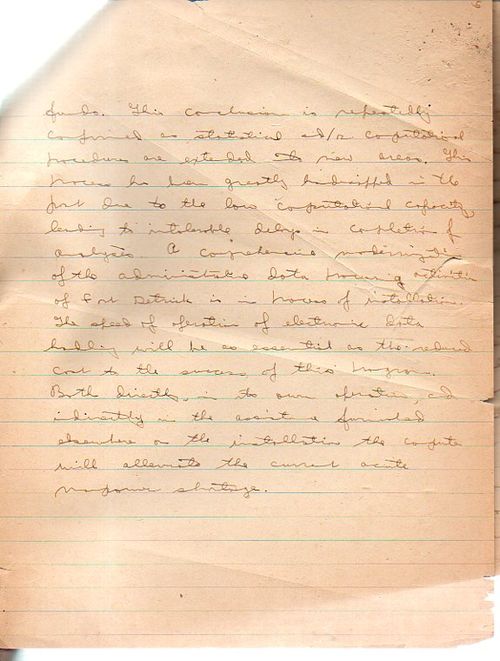 6
funds. This conclusion is repeatedly
confirmed as statistical and/or computational
procedures are extended to new areas. This
process has been greatly handicapped in the
past due to the low computational capacity,
leading to intolerable delays in completion of
analyses. A comprehensive modernization
of the administrative data processing
of Fort Detrick is in process of installation.
The speed of operation of electronic data
handling will be as essential as the reduced
cost to the success of this program.
Both directly, in its own operation, and
indirectly in the assistance furnished
elsewhere on the installation the computer
will alleviate the current acute
manpower shortage.